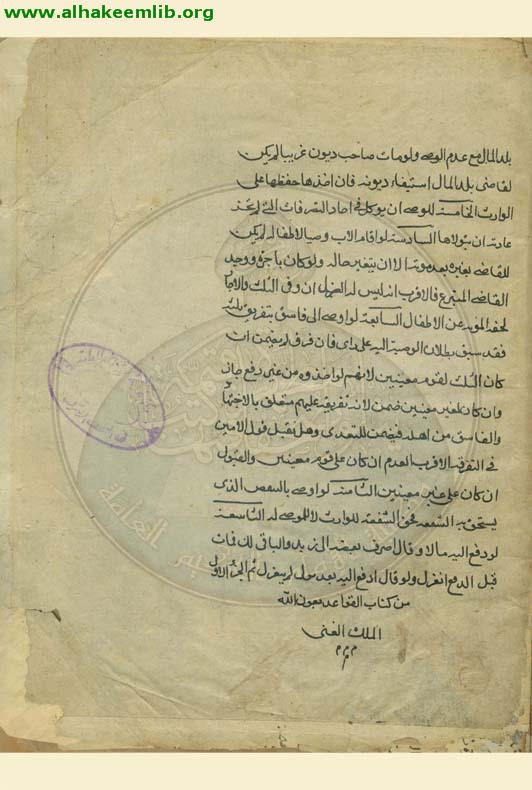 www.alhakeemlib.org
بلد المال مع عدم الوصى ولو مات صاحب ديون غريبا لم يكن
لقاضى بلد المال استيفاء ديونه فان اخذها حفظها على
الوارث الخامسة للوصى ان يوكل فى احاد التصرفات التى لم تجز
عادته ان يتولاها السادسة لو اقام الاب وصيا لاطفاله لم يكن
للقاضى بغيره بعد موته الا ان يتغير حاله ولو كان باجرة ووجد
القاضى المتبرع فالاقرب انه ليس له العزل ان وفى الثلث والاجرة
عن الاطفال السابعة لو اوصى الى فاسق بتفريق ثلثه
فقد سبق بطلان الوصية اليه على راى فان فرق لم يضمن ان
كان الثلث لقوم معينين لانهم لو اخذوه من غير دفع جاز
وان كان لغير معينين ضمن لان تفريقه عليهم متعلق بالاجتهاد
والفاسق من اهله فيضمن للتعدى وهل يقبل قول الامين
فى التفرقة الاقرب العدم ان كان على قوم معينين والقبول
ان كان على غير معينين الثامنة لو اوصى بالشقص الذى
يستحق به الشفعة فحق الشفعة للوارث لا للموصى له التاسعة
لو دفع اليه مالا وقال اصرف بعضه الى زيد والباقى لك فمات
قبل الدفع انعزل ولو قال ادفع اليه بعد موتى لم ينعزل تم الجزء الاول
من كتاب القواعد بعون الله
الملك الغنى
م م م
م